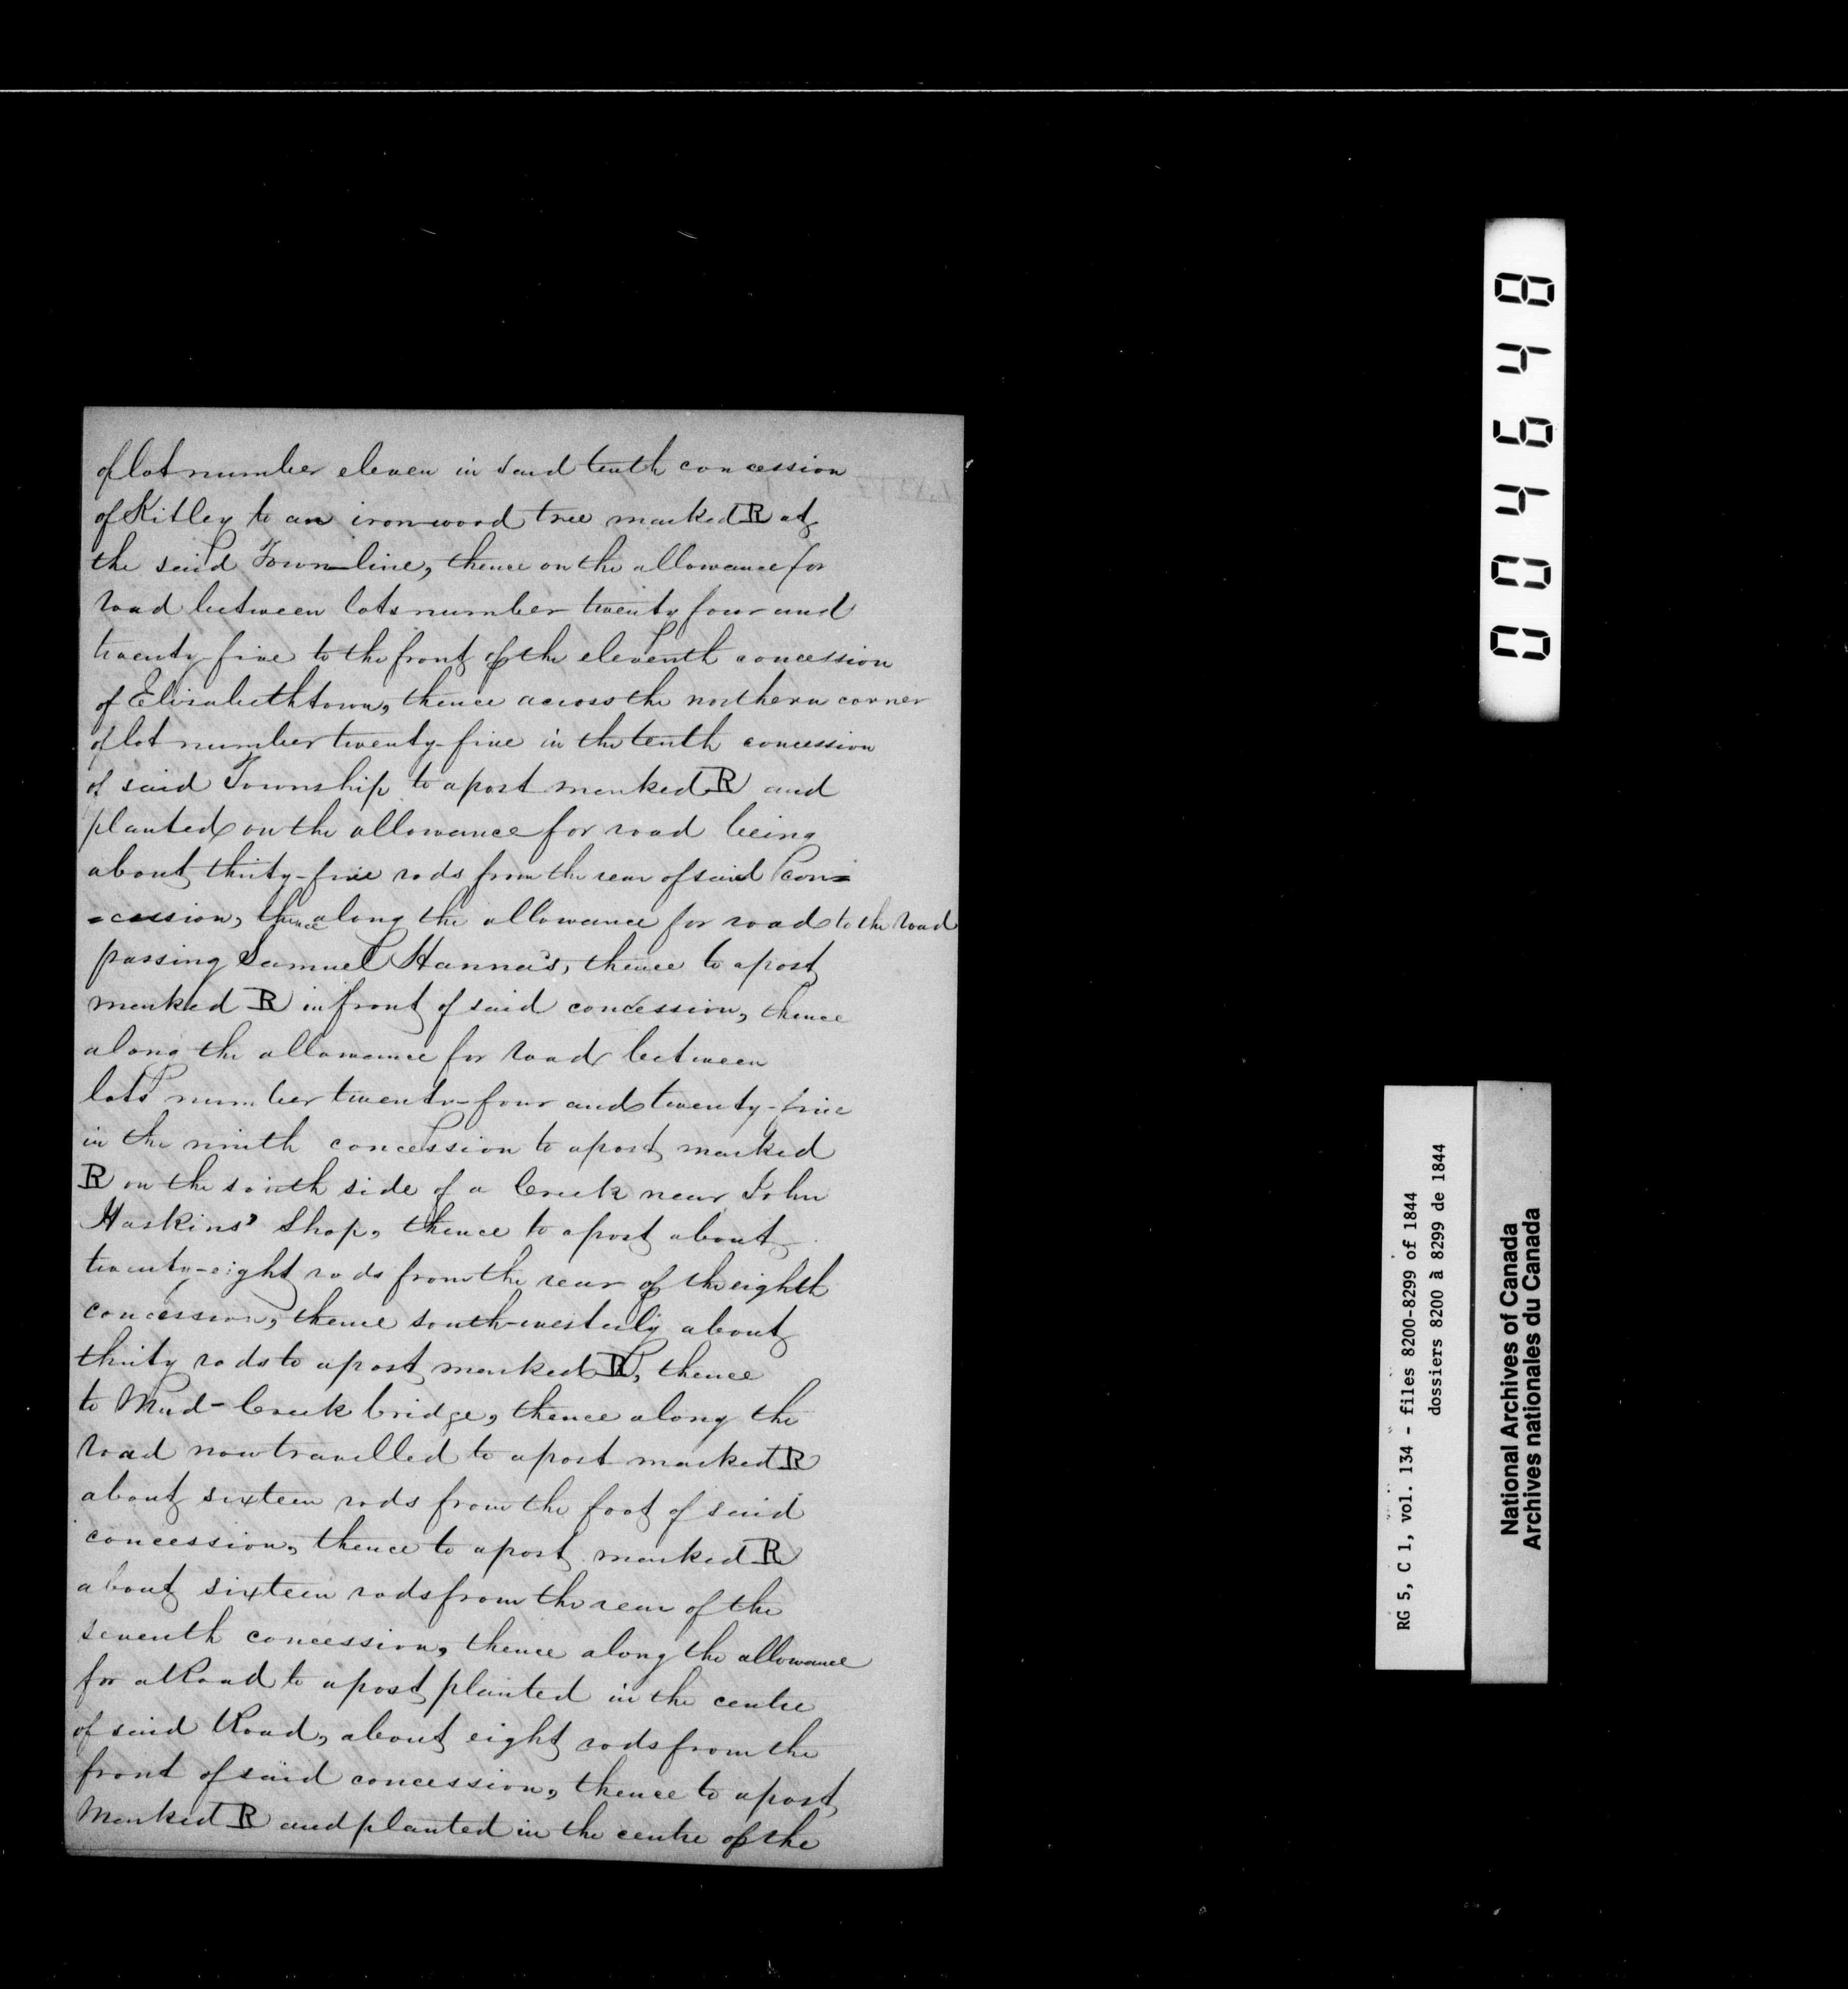 of lot number eleven in said tenth concession
of Kitley to an iron-wood tree marked R at
the said Town-line, thence on the allowance for
road between lots number twenty four and
twenty five to the front of the eleventh concession
of Elizabethtown, thence across the northern corner
of lot number twenty-five in the tenth concession
of said Township to a post marked R and
planted on the allowance for road being
about thirty-five rods from the rear of said Con=
=cession, thence along the allowance for road to the road
passing Samuel Hanna's, thence to a post
marked R in front of said concession, thence
along the allowance for road between
lots number twenty-four and twenty-five
in the ninth concession to a post marked
R on the south side of a Creek near John
Haskins' Shop, thence to a post about
twenty-eight rods from the rear of the eighth
concession, thence south-westerly about
thirty rods to a post marked R, thence
to Mud-Creek bridge, thence along the
road now travelled to a post marked R
about sixteen rods from the foot of said
concession, thence to a post marked R
about sixteen rods from the rear of the
seventh concession, thence along the allowance
for a Road to a post planted in the centre
of said Road, about eight rods from the
front of said concession, thence to a post
Marked R and planted in the centre of the
004648
RG 5, C 1, vol. 134 - files 8200-8299 of 1844
dossiers 8200 à 8299 de 1844
National Archives of Canada
Archives nationales du Canada